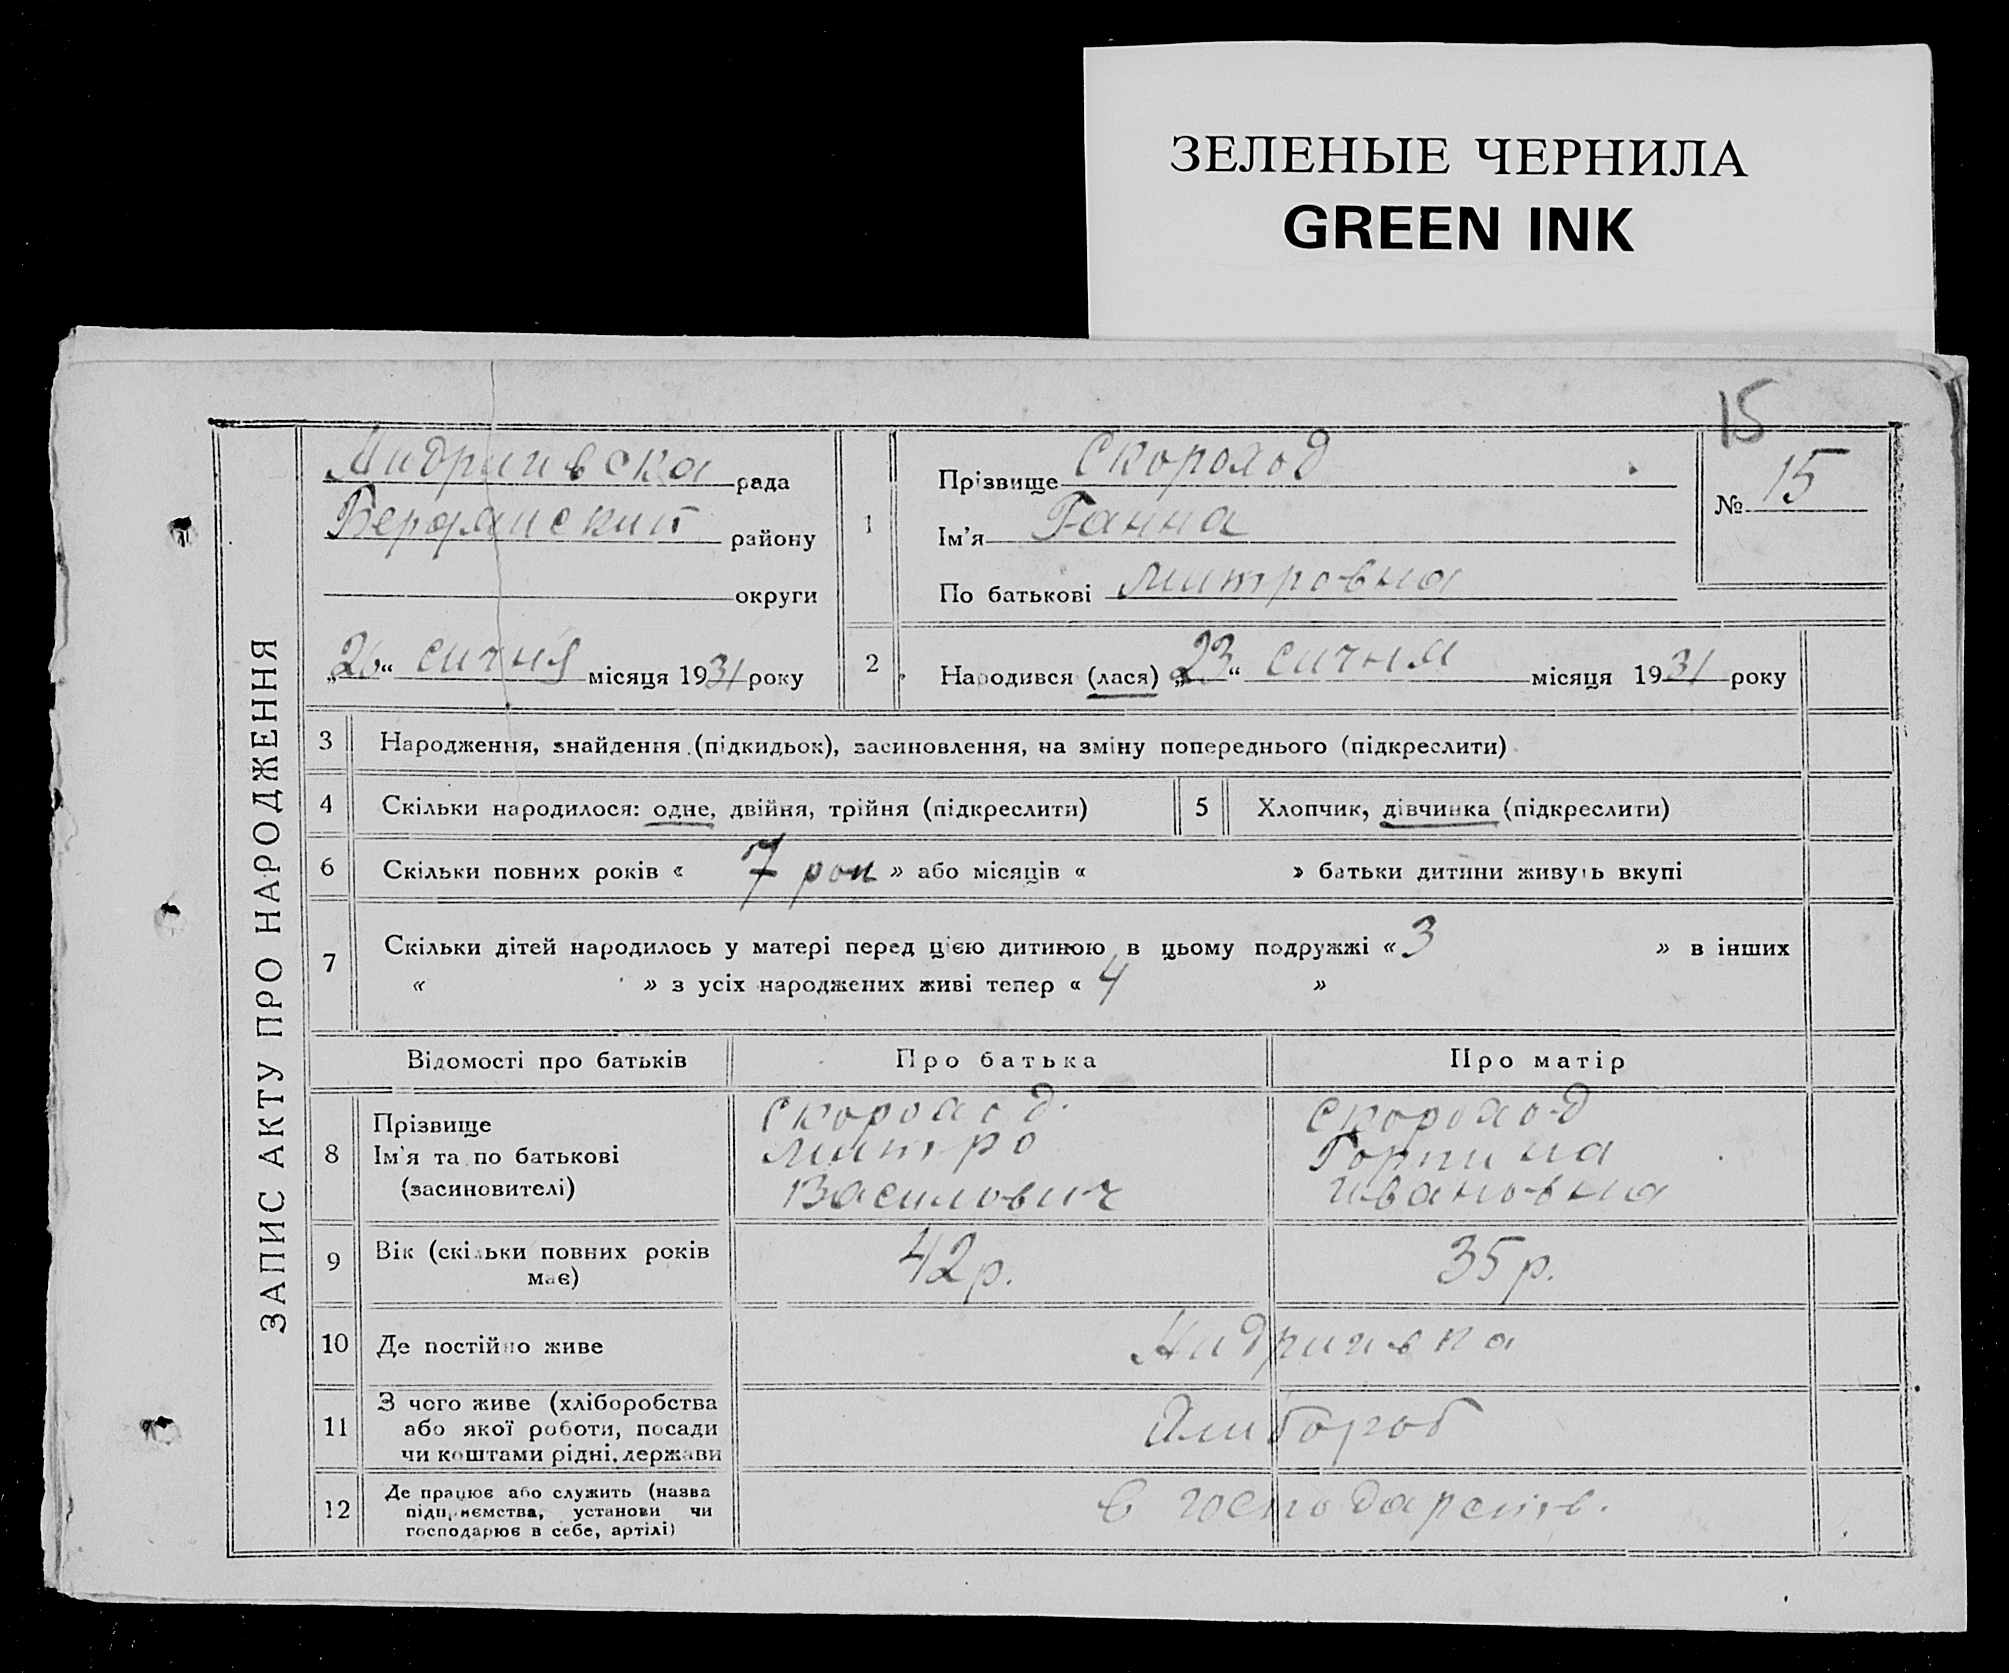 ЗЕЛЕНЫЕ ЧЕРНИЛА
GREEN INK
15
ЗАПИС АКТУ ПРО НАРОДЖЕННЯ
рада
Бердянский району
округи
„26“ сичня місяця 1931 року
1
Прізвище Скороход
Ім'я Ганна
По батькові митровна
№ 15
2
Народився (лася) „23“ сичня місяця 1931 року
3 Народження, знайдення (підкидьок), засиновлення, на зміну попереднього (підкреслити)
4 Скільки народилося: одне, двійня, трійня (підкреслити)
5 Хлопчик, дівчинка (підкреслити)
6 Скільки повних років « 7 рок » або місяців « » батьки дитини живуть вкупі
7 Скільки дітей народилось у матері перед цією дитиною в цьому подружжі « 3 » в інших
« » з усіх народжених живі тепер « 4 »
Відомості про батьків
Про батька
Про матір
8
Прізвище
Ім'я та по батькові
(засиновителі)
Скороход
митро
Василович
Скороход
Горпина
ивановна
9
Вік (скільки повних років
має)
42 р.
35 р.
10 Де постійно живе
11
З чого живе (хліборобства
або якої роботи, посади
чи коштами рідні, держави
12
Де працює або служить (назва
підприємства, установи чи
господарює в себе, артілі)
в господарств.